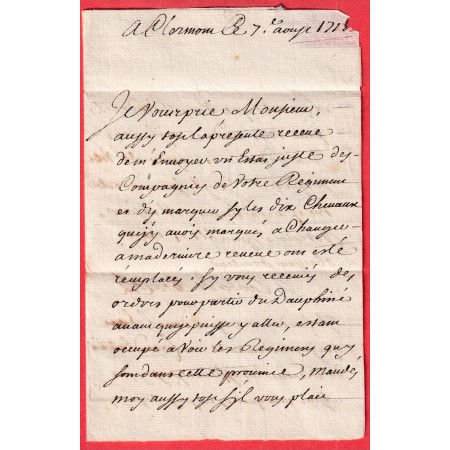 A Clermont Ce 7.e avril 1718.
Je vous prie Monsieur,
aussy tost la presente receue
de m'envoyer un Estat juste des
Compagnies de Vostre Regiment
et d'y marquer sy les dix Chevaux
que j'y avois marqués a Changer
a ma derniere reveue ont esté
remplacés sy vous receviés des
ordres pour partir du Dauphiné
avant que je puisse y aller, estant
occupé a Voir les Regimens qui
sont dans cette province, mandés
moy aussy tost s'il vous plait